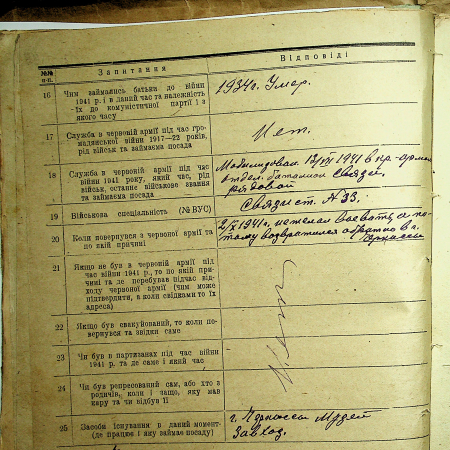 №№ п-п.
Запитання
Відповіді
16
Чим займались батьки до війни
1941 р. і в даний час та належність
їх до комуністичної партії і з
якого часу
1934г. Умер.
17
Служба в червоній армії під час гро-
мадянської війни 1917—22 років,
рід військ та займаема посада
Нет.
18
Служба в червоній армії під час
війни 1941 року, який час, рід
військ, останнє військове звання
та займаема посада
Мобилизован 12/VII 1941 в кр. армию
отдел. батальон Связи.
рядовой
19
Військова спеціальність (№ ВУС)
Связист. N 33.
20
Коли повернувся з червоної армії та
по якій причині
2/X 1941г. не желая воевать по
тому возвратился обратно в г.
Черкассы
21
Якщо не був в червоній армії під
час війни 1941 р., то по якій при-
чині та де перебував підчас від-
ходу червоної армії (чим може
підтвердити, а коли свідками то їх
адреса)
22
Якщо був евакуйований, то коли по-
вернувся та звідки саме
23
Чи був в партизанах під час війни
1941 р. та де саме і який час
24
Чи був репресований сам, або хто з
родичів, коли і защо, яку мав
кару та чи відбув її
25
Засоби існування в даний момент-
(де працює і яку займає посаду)
г. Черкассы Музей
Завхоз.